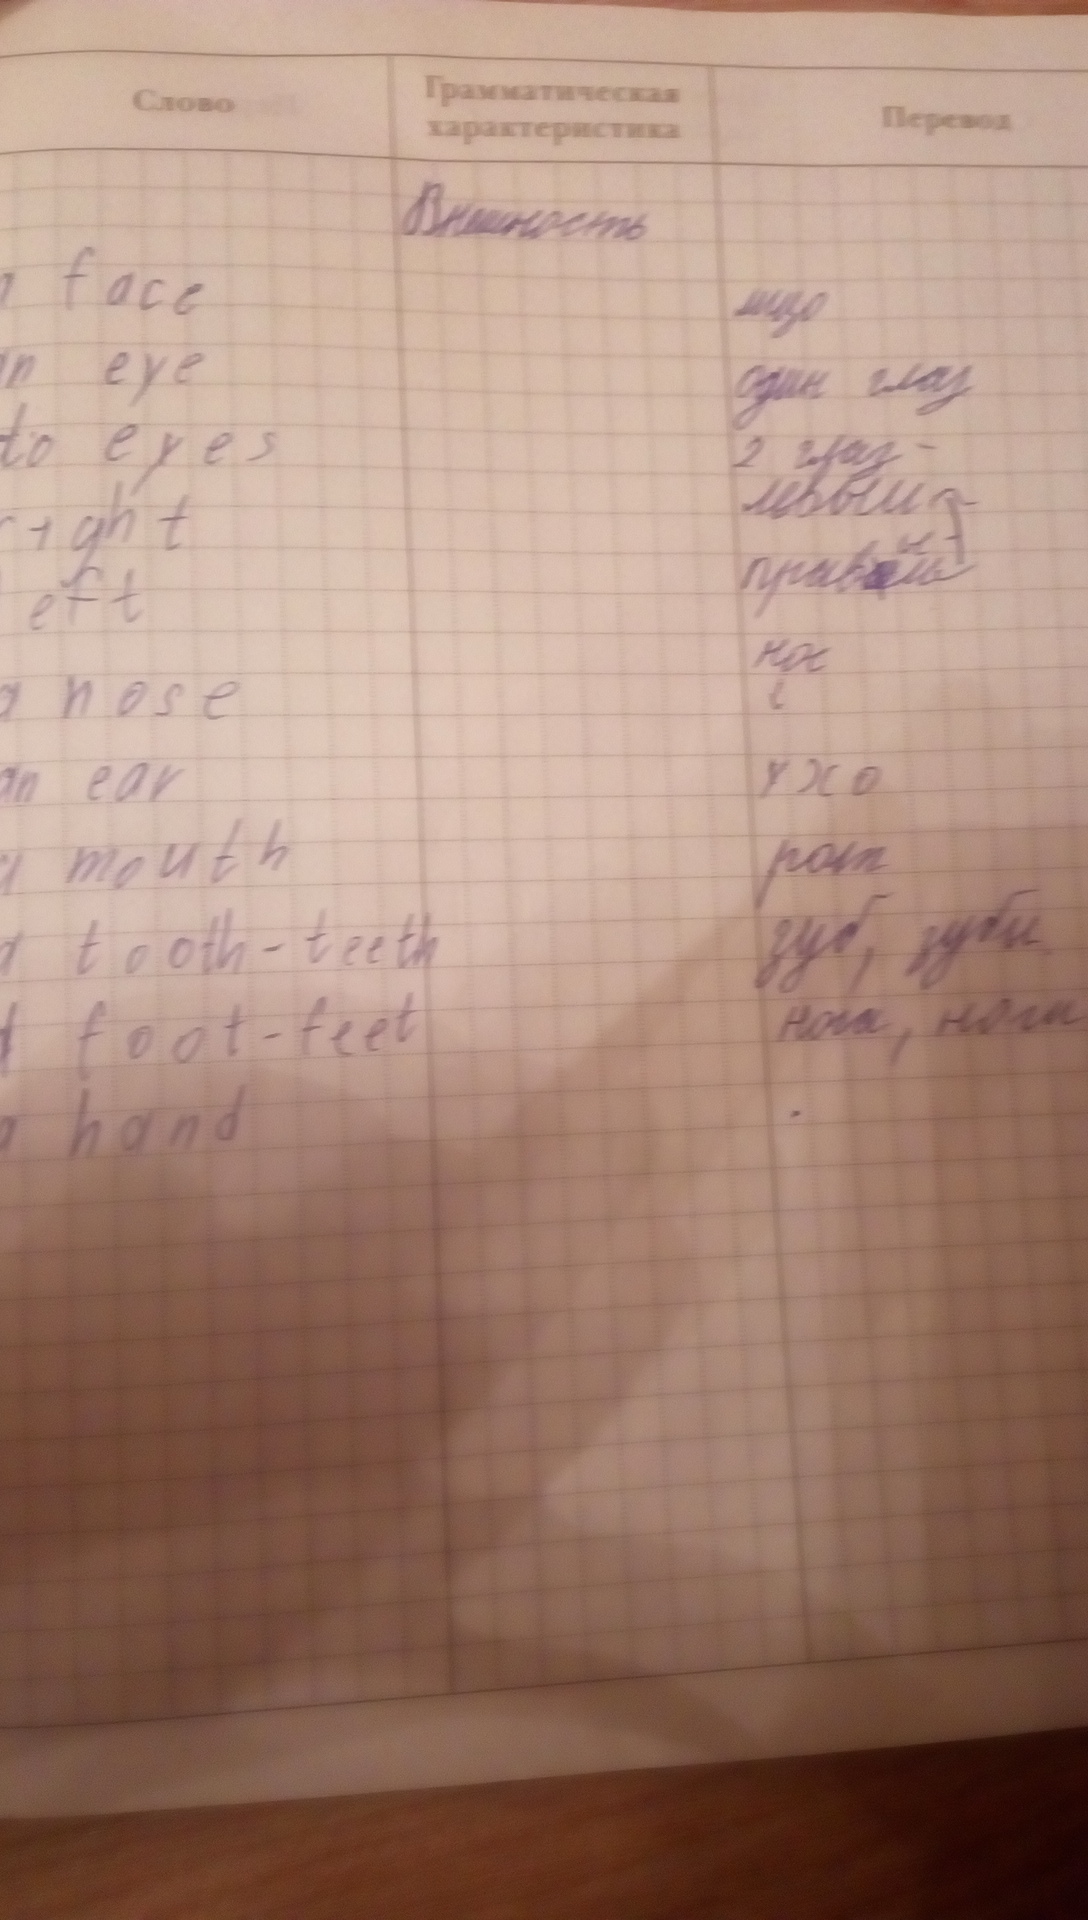 Слово Грамматическая характеристика Перевод
Внешность
a face лицо
an eye один глаз
to eyes 2 глаз-
right левый
left правый
a nose нос
an ear ухо
a mouth рот
a tooth-teeth зуб, зубы
a foot-feet нога, ноги
a hand